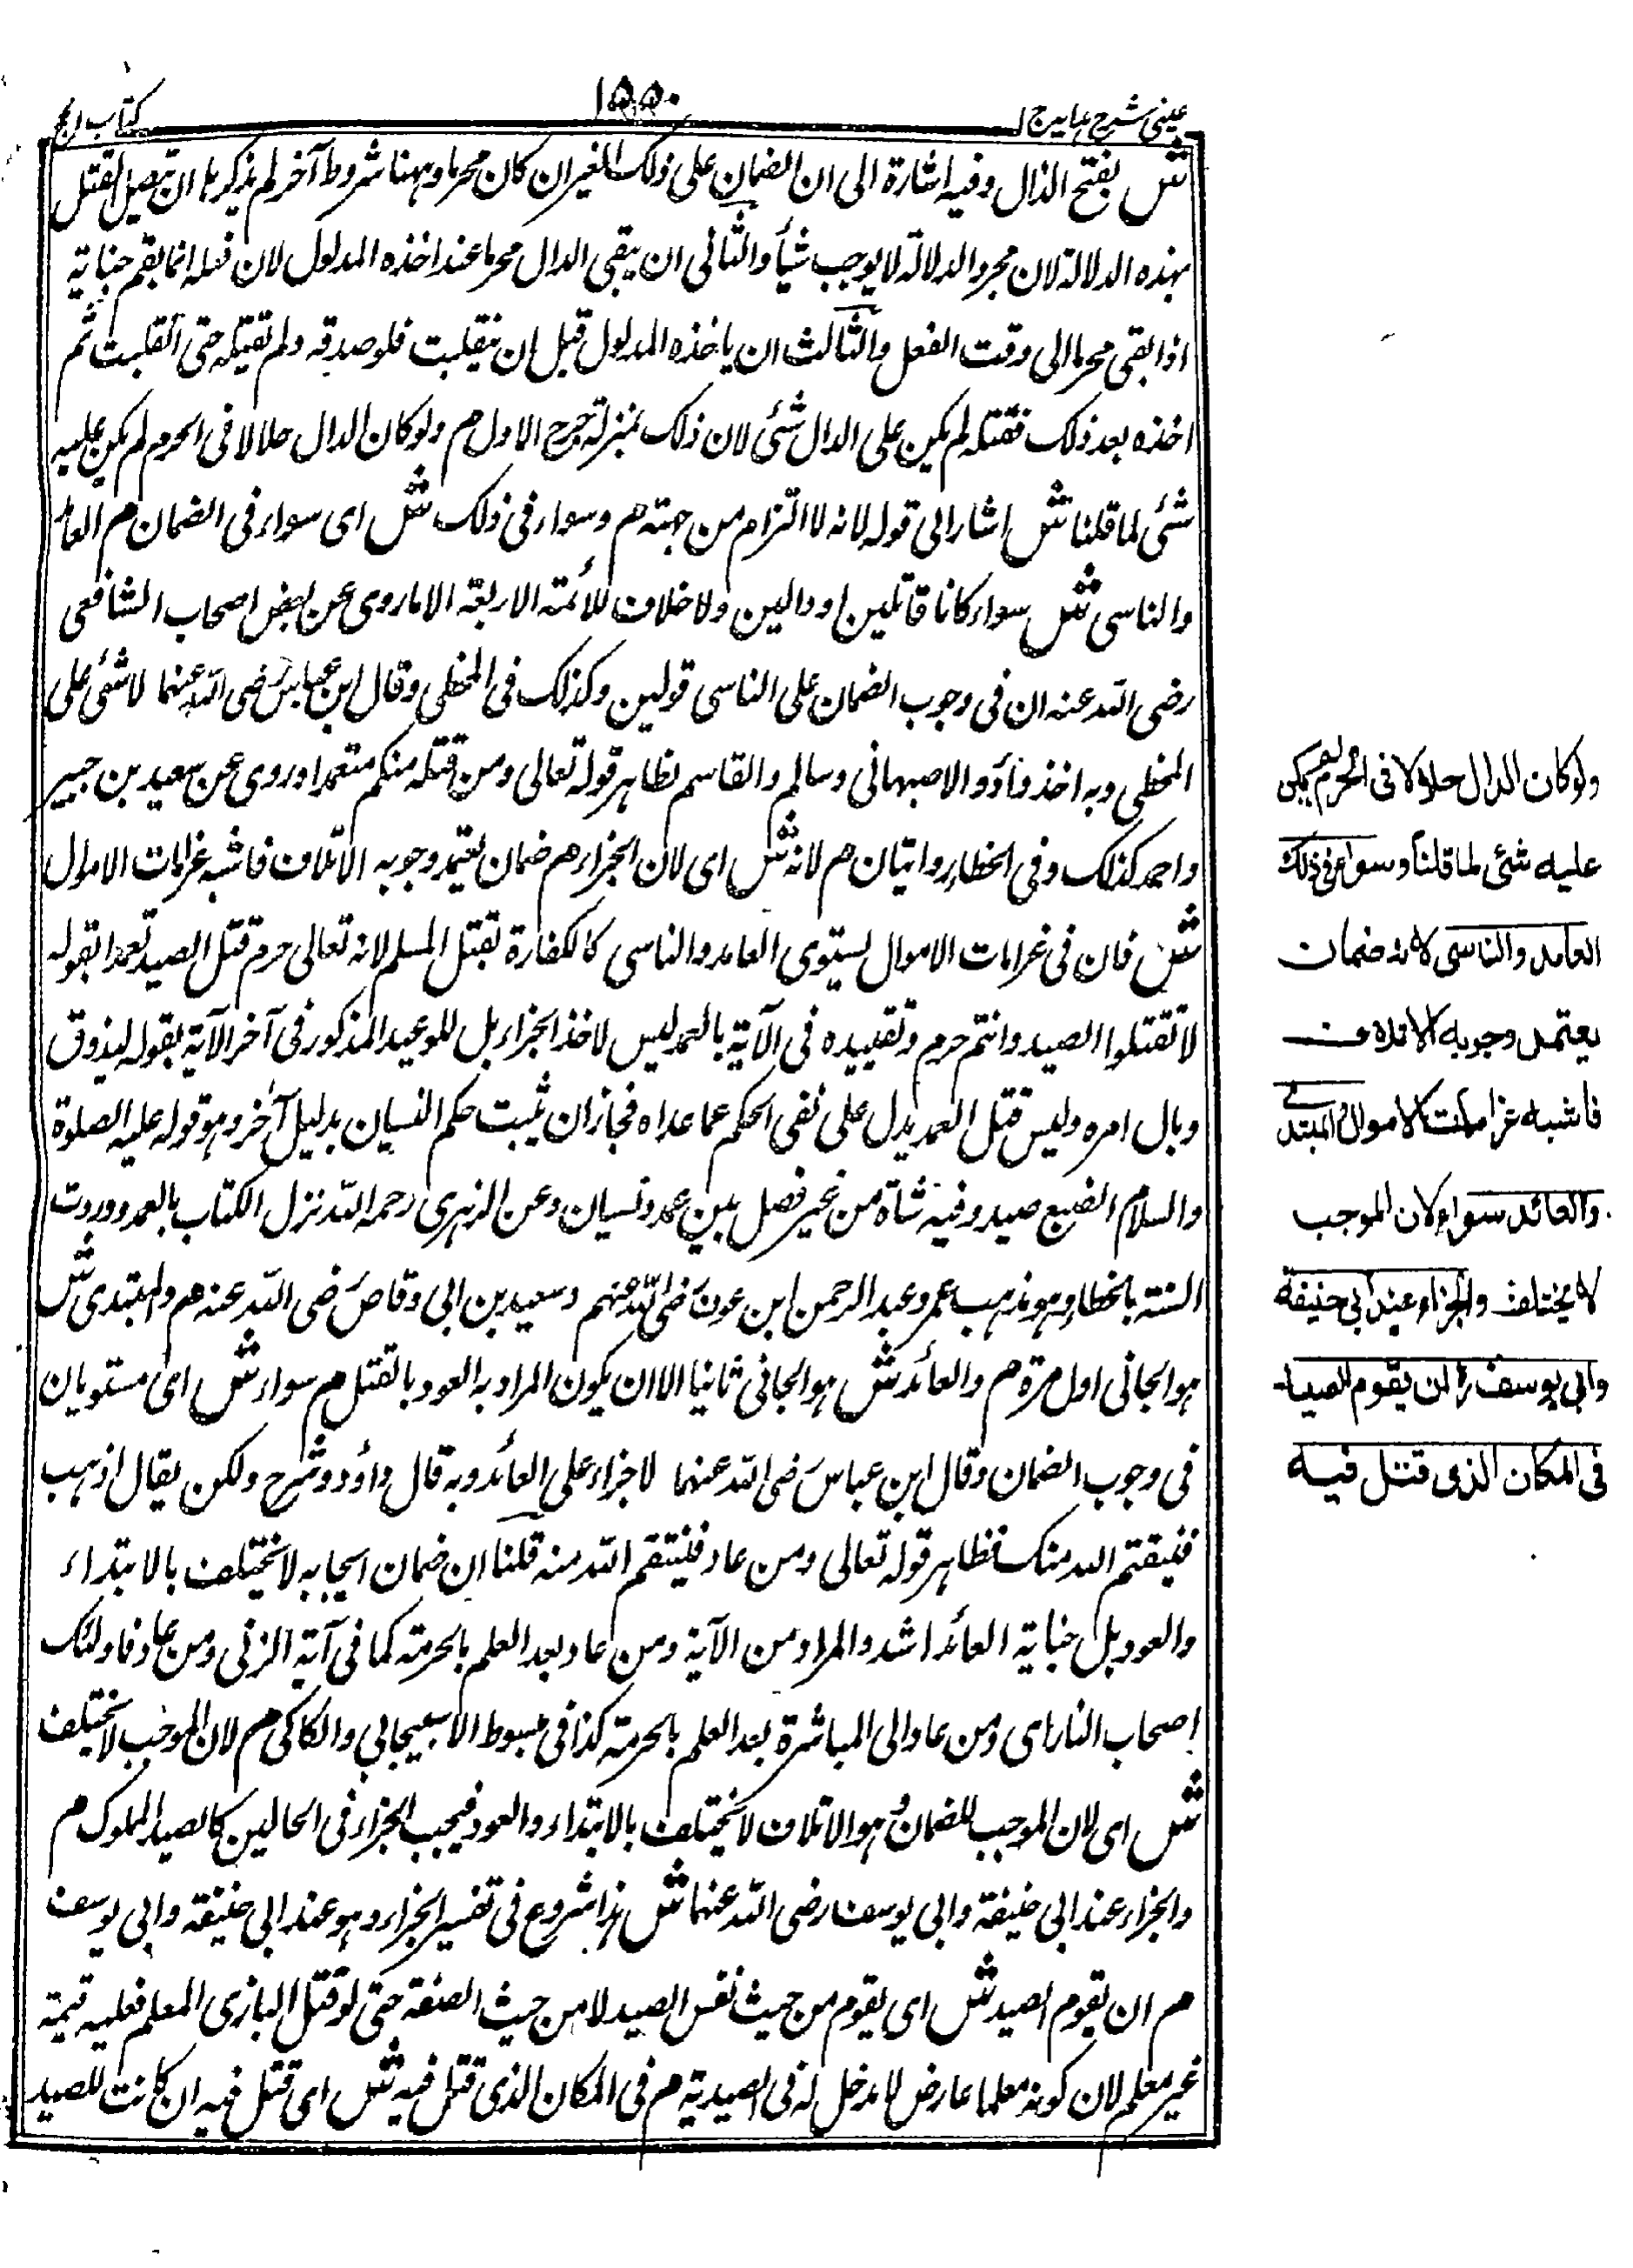 عینی شرح ہدایہ ج ١
١٥٥٠
كتاب الحج
ش بفتح الذال وفیه اشارة الی ان الضمان علی ذلک الغیر ان کان محرما وههنا شروط آخر لم یذکرها ان یتصل القتل
بهذه الدلالة لان مجرد الدلالة لا یوجب شیأ والثانی ان یبقی الدال محرما عند اخذه المدلول لان فعله انما یقم جنایة
اذا بقی محرما الی وقت الفعل والثالث ان یاخذه المدلول قبل ان ینقلبت فلو صدقه ولم یقتله حتی انقلبت ثم
اخذه بعد ذلک فقتله لم یکن علی الدال شئ لان ذلک بمنزلة جرح الاول م ولو کان الدال حلالا فی الحرم لم یکن علیه
شئ لما قلنا ش اشار الی قوله لانه لا التزام من جهته م وسواء فی ذلک ش ای سواء فی الضمان م العامد
والناسی ش سواء کانا قاتلین او دالین ولا خلاف للائمة الاربعة الا ما روی عن بعض اصحاب الشافعی
رضی الله عنه ان فی وجوب الضمان علی الناسی قولین وکذلک فی المخطی وقال ابن عباس رضی الله عنهما لا شئ علی
المخطی وبه اخذ داؤد والاصبهانی وسالم والقاسم لظاهر قوله تعالی ومن قتله منکم متعمدا وروی عن سعید بن جبیر
واحمد کذلک وفی الخطاء روایتان م لانه ش ای لان الجزاء م ضمان یعتمد وجوبه الاتلاف فاشبه غرامات الاموال
ش فان فی غرامات الاموال یستوی العامد والناسی کالکفارة بقتل المسلم لانه تعالی حرم قتل الصید تعمدا بقوله
لا تقتلوا الصید وانتم حرم وتقییده فی الآیة بالعمد لیس لاخذ الجزاء بل للوعید المذکور فی آخر الآیة بقوله لیذوق
وبال امره ولیس قتل العمد یدل علی نفی الحکم عما عداه فجاز ان یثبت حکم النسیان بدلیل آخر وهو قوله علیه الصلوة
والسلام الضبع صید وفیه شاة من غیر فصل بین عمد ونسیان وعن الزهری رحمه الله نزل الکتاب بالعمد ووردت
السنة بالخطاء وهو مذهب عمر وعبد الرحمن ابن عوف رضی الله عنهم وسعید بن ابی وقاص رضی الله عنه م والمبتدی ش
هو الجانی اول مرة م والعائد ش هو الجانی ثانیا الا ان یکون المراد به العود بالقتل م سواء ش ای مستویان
فی وجوب الضمان وقال ابن عباس رضی الله عنهما لا جزاء علی العائد وبه قال داؤد وشرح ولکن یقال اذهب
فینقتم الله منک لظاهر قوله تعالی ومن عاد فینتقم الله منه قلنا ان ضمان ایجابه لا یختلف بالابتداء
والعود بل جنایة العائد اشد والمراد من الآیة ومن عاد بعد العلم بالحرمة کما فی آیة الزنی ومن عاد فاولئک
اصحاب النار ای ومن عاد الی المباشرة بعد العلم بالحرمة کذا فی مبسوط الاسبیجابی والکاکی م لان الموجب لا یختلف
ش ای لان الموجب للضمان وهو الاتلاف لا یختلف بالابتداء والعود فیجب الجزاء فی الحالین کالصید المملوک م
والجزاء عند ابی حنیفة وابی یوسف رضی الله عنهما ش هذا شروع فی تفسیر الجزاء وهو عند ابی حنیفة وابی یوسف
م ان یقوم الصید ش ای یقوم من حیث نفس الصید لا من حیث الصنعة حتی لو قتل البازی المعلم فعلیه قیمته
غیر معلم لان کونه معلما عارض لا مدخل له فی الصیدیة م فی المکان الذی قتل فیه ش ای قتل فیه ان کانت للصید
ولو کان الدال حلالا فی الحرم لم یکن
علیه شئ لما قلنا وسواء فی ذلک
العامد والناسی لانه ضمان
یعتمد وجوبه الاتلاف
فاشبه غرامات الاموال والمبتدی
والعائد سواء لان الموجب
لا یختلف والجزاء عند ابی حنیفة
وابی یوسف رح ان یقوم الصید
فی المکان الذی قتل فیه